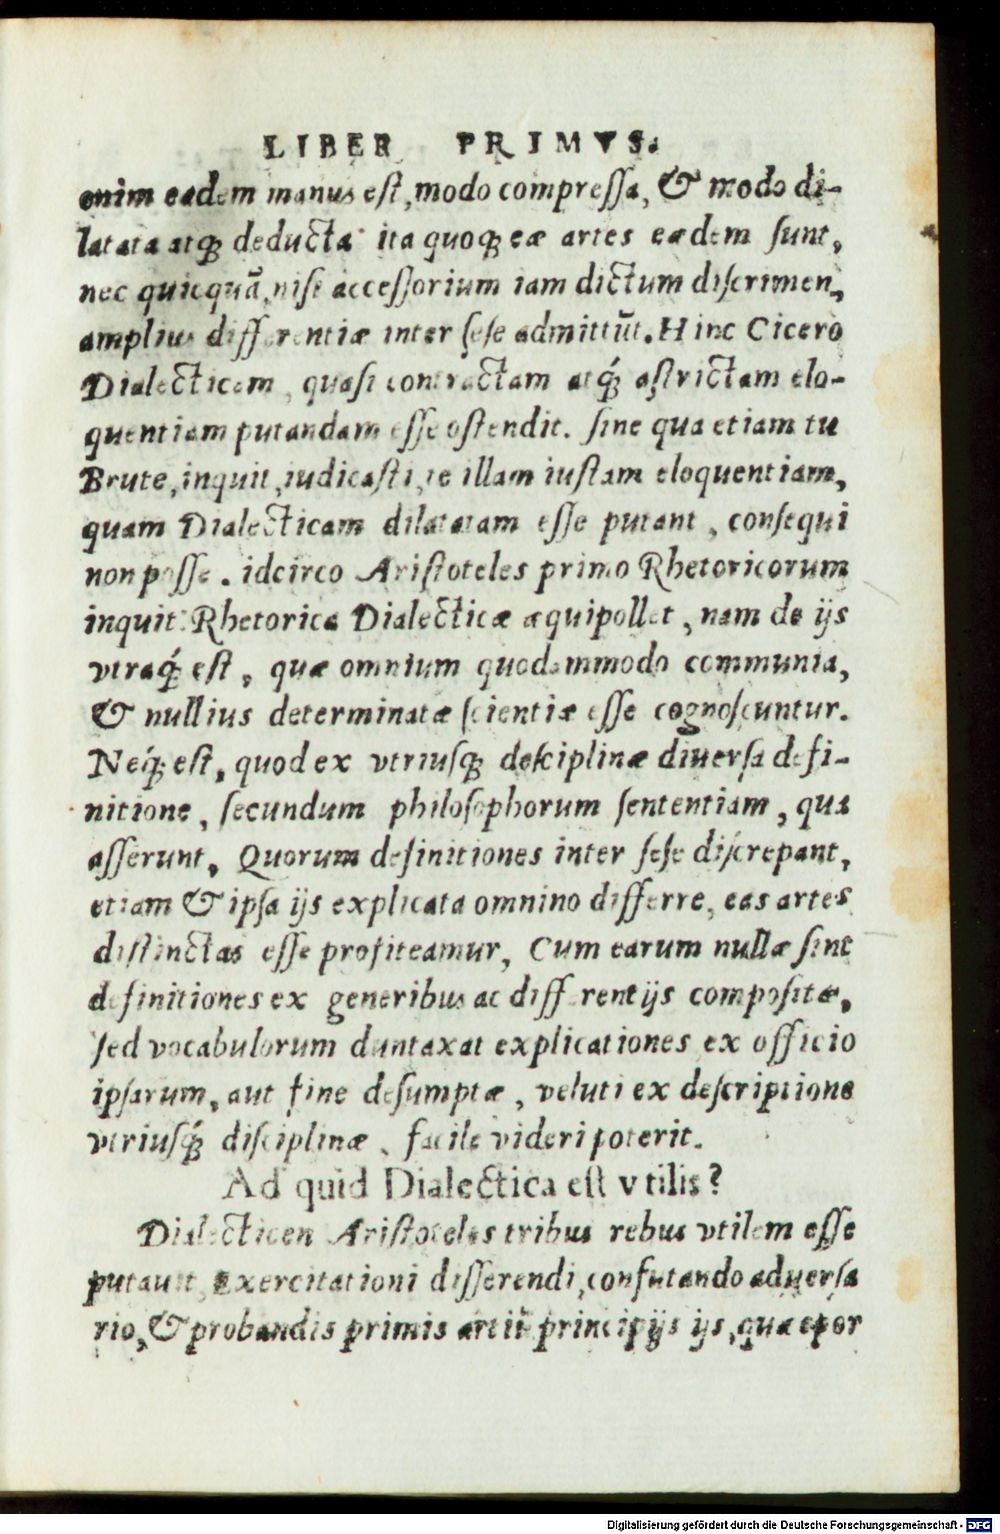 LIBER PRIMVS.
enim eadem manus est, modo compressa, & modo di-
latata atq́; deducta: ita quoq; eæ artes eædem sunt,
nec quicquā, nisi accessorium iam dictum discrimen,
amplius differentiæ inter sese admittūt. Hinc Cicero
Dialecticam, quasi contractam atq́; astrictam elo-
quentiam putandam esse ostendit. sine qua etiam tu
Brute, inquit, iudicasti, te illam iustam eloquentiam,
quam Dialecticam dilatatam esse putant, consequi
non posse. idcirco Aristoteles primo Rhetoricorum
inquit: Rhetorica Dialecticæ æquipollet, nam de ijs
vtraq́; est, quæ omnium quodammodo communia,
& nullius determinatæ scientiæ esse cognoscuntur.
Neq́; est, quod ex vtriusq; desciplinæ diuersa defi-
nitione, secundum philosophorum sententiam, qua
asserunt, Quorum definitiones inter sese discrepant,
etiam & ipsa ijs explicata omnino differre, eas artes
distinctas esse profiteamur, Cum earum nullæ sint
definitiones ex generibus ac differentijs compositæ,
sed vocabulorum duntaxat explicationes ex officio
ipsarum, aut fine desumptæ, veluti ex descriptione
vtriusq́; disciplinæ, facile videri poterit.
Ad quid Dialectica est vtilis?
Dialecticen Aristoteles tribus rebus vtilem esse
putauit, Exercitationi disserendi, confutando aduersa
rio, & probandis primis artiū principijs ijs, quæ
Digitalisierung gefördert durch die Deutsche Forschungsgemeinschaft - DFG